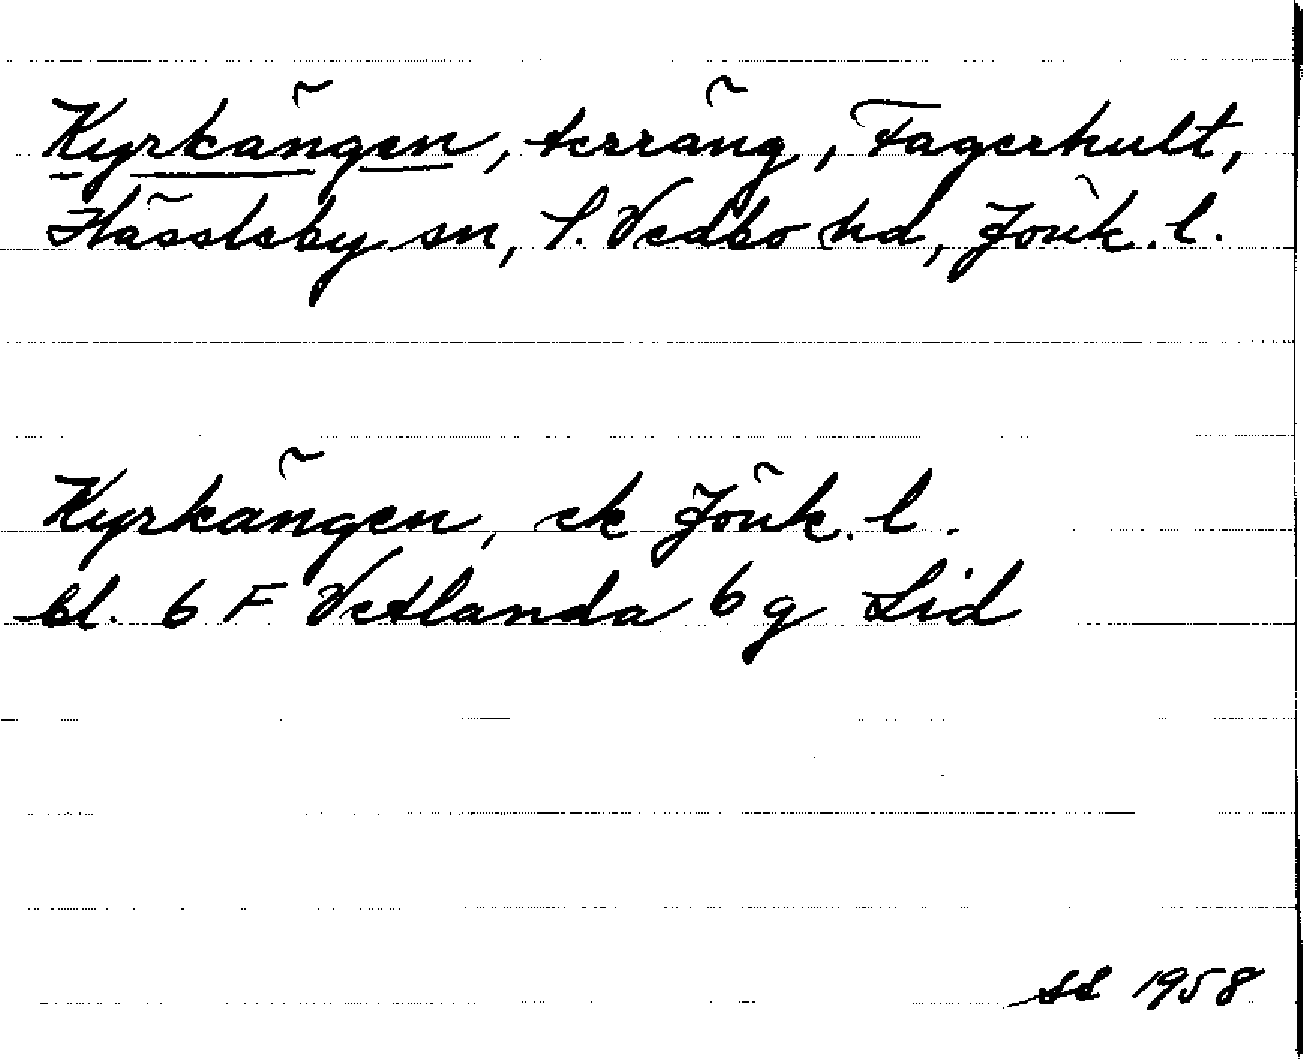 Kyrkängen, terräng, Fagerhult,
Hässleby sn, S. Vedbo hd, Jönk. l.
Kyrkängen, ek Jönk. l.
bl. 6 F Vetlanda 6 g Lid
1958